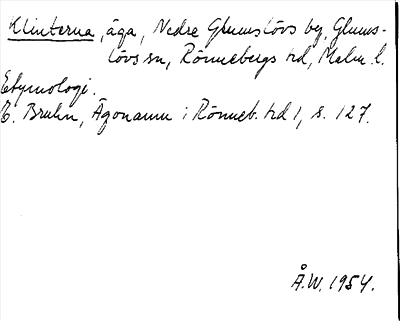 Klinterna, äga, Nedre Glumslövs by, Glums-
lövs sn, Rönnebergs hd, Malm. l.
Etymologi.
B. Bruhn, Ägonamn i Rönneb. hd 1, s. 127.
Å.W. 1954.